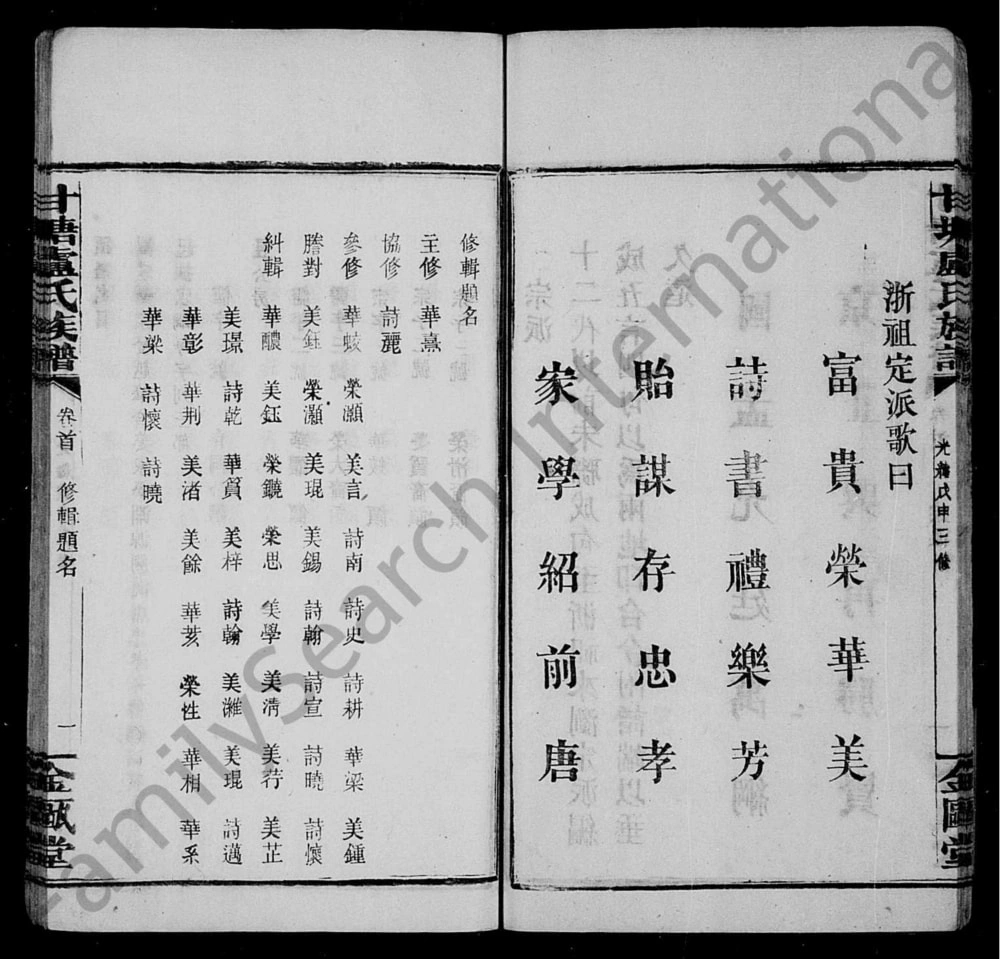 浙祖定派歌曰
富貴榮華美
詩書禮樂芳
貽謀存忠孝
家學紹前唐
光緒戊申三修
金甌堂
修輯題名
主修 華熹
協修 詩麗
參修 華蛟 榮灝 美言 詩南 詩史 詩耕 華梁 美鍾
謄對 美鈺 榮灝 美琨 美錫 詩翰 詩宣 詩曉 詩懷
糾輯 華醲 美鈺 榮鐃 榮思 美學 美淸 美荇 美芷
美璟 詩乾 華質 美梓 詩翰 美濰 美琨 詩邁
華彰 華荆 美渚 美餘 華荄 榮性 華相 華系
華梁 詩懷 詩曉
甘塘盧氏族譜
卷首 修輯題名
一
金甌堂
FamilySearch International